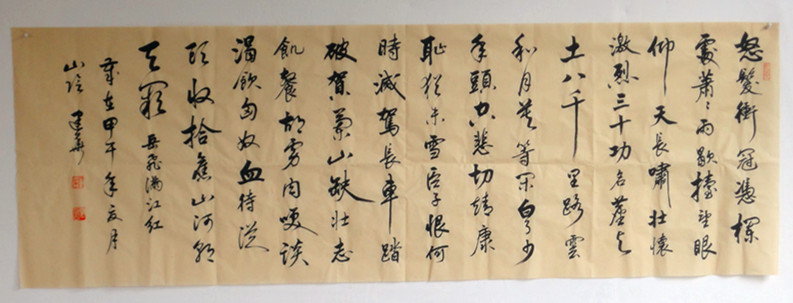 怒髮衝冠憑欄
處蕭〻雨歇擡望眼
仰天長嘯壯懷
激烈三十功名塵与
土八千里路雲
和月莫等閑白了少
年頭空悲切靖康
恥猶未雪臣子恨何
時滅駕長車踏
破賀蘭山缺壯志
飢餐胡虜肉笑談
渴飲匈奴血待從
頭收拾舊山河朝
天闕 岳飛滿江紅
歲在甲午年夏月
建華